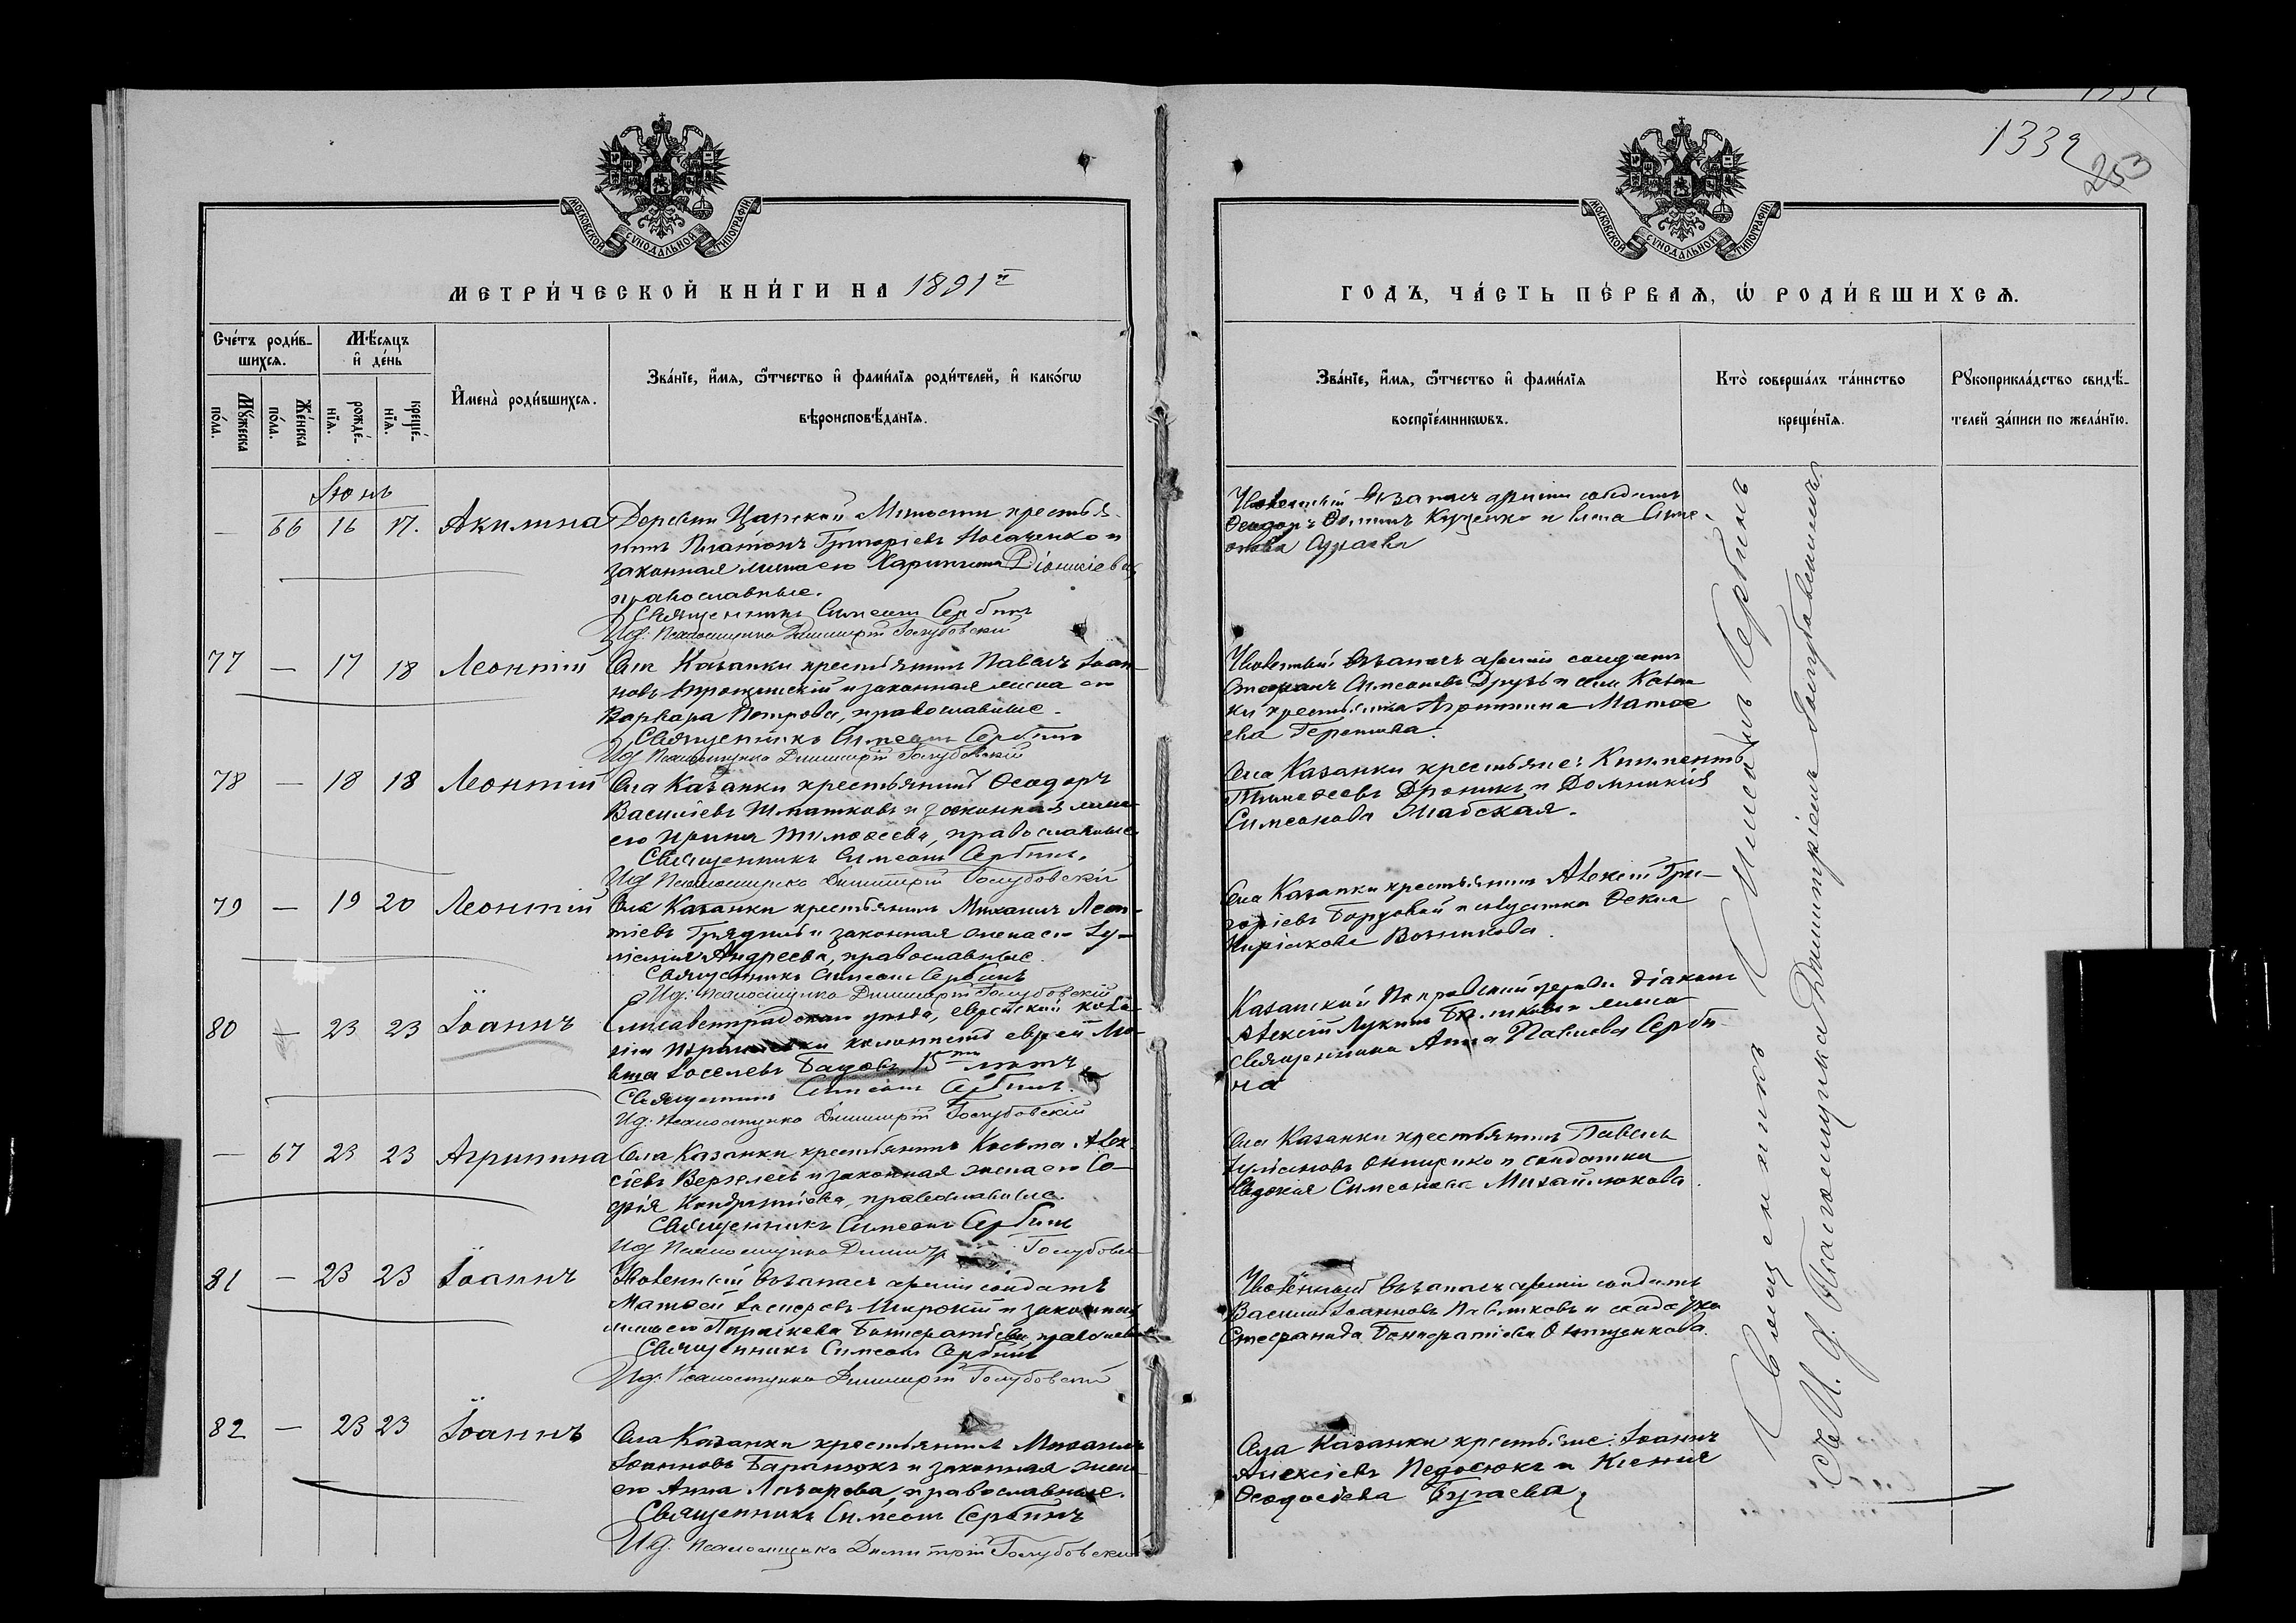 1332
253
МОСКОВСКОЙ СѴНОДАЛЬНОЙ ТИПОГРАФІИ
МОСКОВСКОЙ СѴНОДАЛЬНОЙ ТИПОГРАФІИ
МЕТРИ́ЧЕСКОЙ КНИ́ГИ НА 1891й
ГОДЪ, ЧА́СТЬ ПЕ́РВАѦ, Ѡ҆ РОДИ́ВШИХСѦ.
Сче́тъ роди́в-
шихсѧ.
Мѣ́сѧцъ
и҆ де́нь
Мꙋ́жеска
по́ла.
Же́нска
по́ла.
рожде́-
нїѧ.
креще́-
нїѧ.
И҆мена̀ роди́вшихсѧ.
Зва́нїе, и҆́мѧ, ѻ҆́тчество и҆ фами́лїѧ роди́телей, и҆ како́гѡ
вѣроисповѣ́данїѧ.
Зва́нїе, и҆́мѧ, ѻ҆́тчество и҆ фами́лїѧ
воспрїе́мникѡвъ.
Кто̀ соверша́лъ та́инство
креще́нїѧ.
Рꙋкоприкла́дство свидѣ́-
телей за́писи по жела́нїю.
Іюнь
— 66 16 17. Акилина Деревни Царской Милости крестья-
нинъ Платонъ Григоріевъ Носаченко и
законная жена его Діонисіева,
православные.
Священникъ Симеонъ Сербинъ
И.д. Псаломщика Димитрій Голубовскій
запасъ арміи солдатъ
Ѳеодоръ Куценко и Симе-
онова
77 — 17 18 Леонтій Села Казанки крестьянинъ Павелъ Іоан-
новъ и законная жена его
Варвара Петрова, православные.
Священникъ Симеонъ Сербинъ
И.д. Псаломщика Димитрій Голубовскій
Уволенный въ запасъ арміи солдатъ
Стефанъ Симеоновъ Друзь и села Казан-
ки крестьянка Агрипина Матѳе-
ева
78 — 18 18 Леонтій Села Казанки крестьянинъ Ѳеодоръ
Василіевъ Шматковъ и законная жена
его Ирина Тимоѳеева, православные
Священникъ Симеонъ Сербинъ.
И.д. Псаломщика Димитрій Голубовскій
Села Казанки крестьяне: Климентъ
Тимоѳеевъ Дроникъ и Домникія
Симеонова
79 — 19 20 Леонтій Села Казанки крестьянинъ Михаилъ Леон-
тіевъ и законная жена его Іу-
ліанія Андреева, православные.
Священникъ Симеонъ Сербинъ
И.д. Псаломщика Димитрій Голубовскій
Села Казанки крестьянинъ Алексій Гри-
горіевъ Борзовой и Ѳекла
Киріакова
80 — 23 23 Іоаннъ Елисаветградскаго уѣзда, еврейской коло-
ніи колонистъ еврей
Іоселевъ 15ти лѣтъ.
Священникъ Симеонъ Сербинъ.
И.д. Псаломщика Димитрій Голубовскій
Казанской Покровской церкви діаконъ
Алексій Лукинъ и жена
священника Анна Павлова Серби-
на
— 67 23 23 Агрипина Села Казанки крестьянинъ Косьма Алек-
сіевъ Вержелесъ и законная жена его Со-
фія Кондратіева, православные.
Священникъ Симеонъ Сербинъ
И.д. Псаломщика Голубовскій
Села Казанки крестьянинъ Павелъ
Онищенко и солдатка
Евдокія Симеонова Михайлюкова.
81 — 23 23 Іоаннъ Уволенный въ запасъ арміи солдатъ
Матѳей Іосифовъ Широкій и законная
жена его Параскева православные
Священникъ Симеонъ Сербинъ
И.д. Псаломщика Димитрій Голубовскій
Уволенный въ запасъ арміи солдатъ
Василій Іоанновъ и солдатка
Стефанида Онищенкова.
82 — 23 23 Іоаннъ Села Казанки крестьянинъ Михаилъ
Іоанновъ Баранюкъ и законная жена
его Анна Лазарева, православные.
Священникъ Симеонъ Сербинъ
И.д. Псаломщика Димитрій Голубовскій
Села Казанки крестьяне: Іоаннъ
Алексіевъ Недосюкъ и Ксенія
Ѳеодосіева Бугаева
Священникъ Симеонъ Сербинъ
съ И. д. Псаломщика Димитріемъ Голубовскимъ